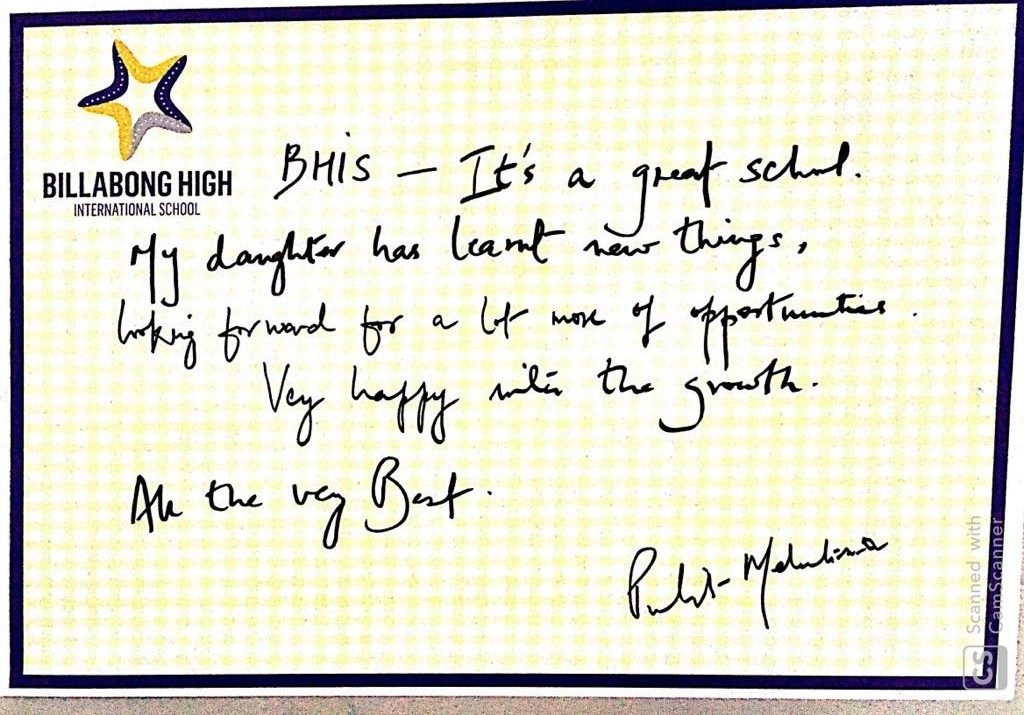 BILLABONG HIGH
INTERNATIONAL SCHOOL
BHIS – It's a great school.
My daughter has learnt new things,
looking forward for a lot more of opportunities.
Very happy with the growth.
All the very Best.
Pulkit
Scanned with
CamScanner
CS